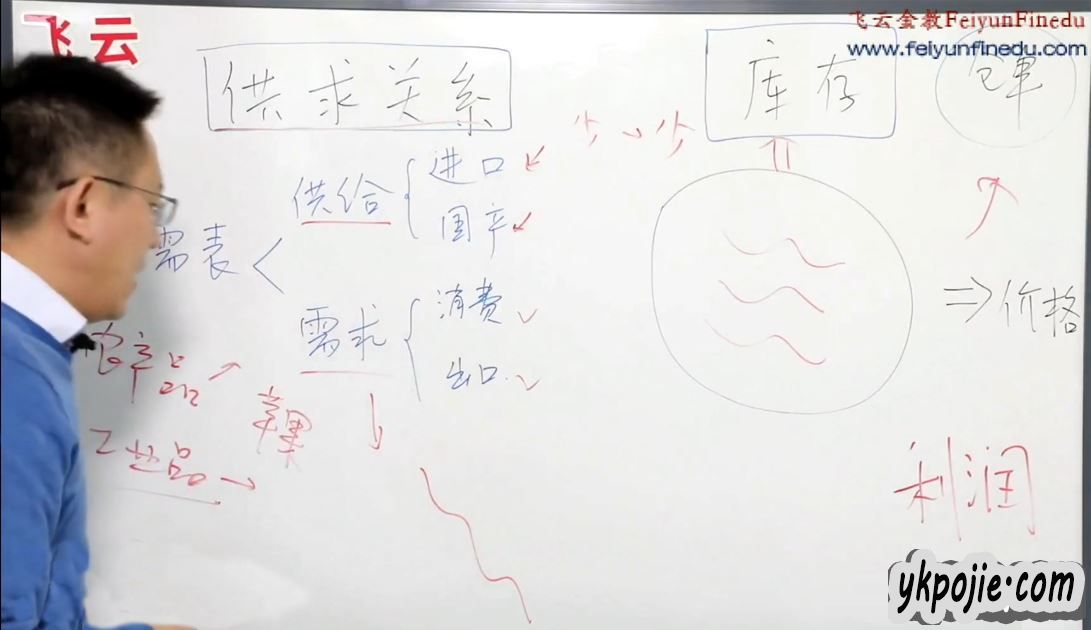 飞云
飞云金教FeiyunFinedu
www.feiyunfinedu.com
供求关系
库存
仓单
少、少
供给
进口
国产
需表
需求
消费
出口
⇒价格
农产品
苹果
工业品
利润
ykpojie·com